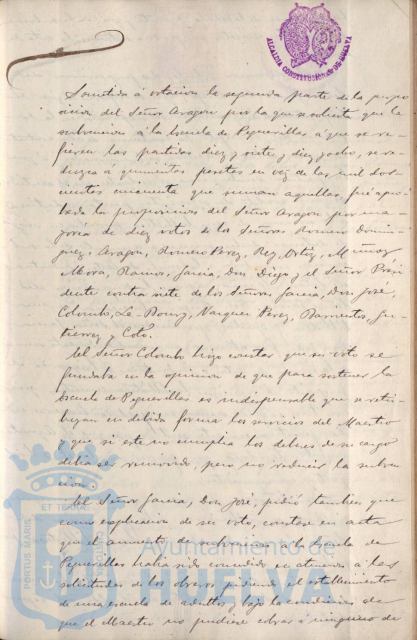 ALCALDIA CONSTITUCIONAL DE HUELVA
Sometida á votacion la segunda parte de la propo
sicion del Señor Aragon por la que se solicita que la
subvencion á la Escuela de Peguerillas á que se re-
fieren las partidas diez y siete y diez y ocho, se re-
duzca a quinientas pesetas en vez de las mil dos-
cientas cincuenta que suman aquellas, fué apro-
bada la proposicion del Señor Aragon por ma-
yoría de diez votos de los Señores Romero Domin-
guez, Aragon, Romero Perez, Rey, Ortiz, Muñoz
Mora, Ramos, Garcia, Don Diego y el Señor Presi
dente contra siete de los Señores Garcia, Don José,
Colombo, Le-Bourg, Vazquez Perez, Barrientos, Gu-
tierrez y Coto.
El Señor Colombo hizo constar que su voto se
fundaba en la opinion de que para sostener la
Escuela de Peguerillas es indispensable que se retri-
buyan en debida forma los servicios del Maestro
y que si este no cumplia los deberes de su cargo
debia ser removido, pero no reducir la subven-
cion.
El Señor Garcia, Don José, pidió tambien que
como esplicacion de su voto, conste en acta
que el aumento de subvencion á la Escuela de
Peguerillas habia sido concedido en atencion á las
solicitudes de los obreros pidiendo el establecimiento
de una escuela de adultos y bajo la condicion de
que el Maestro no pudiese cobrar á ninguno de
PORTUS MARIS
ET TERRAE
Ayuntamiento de
HUELVA